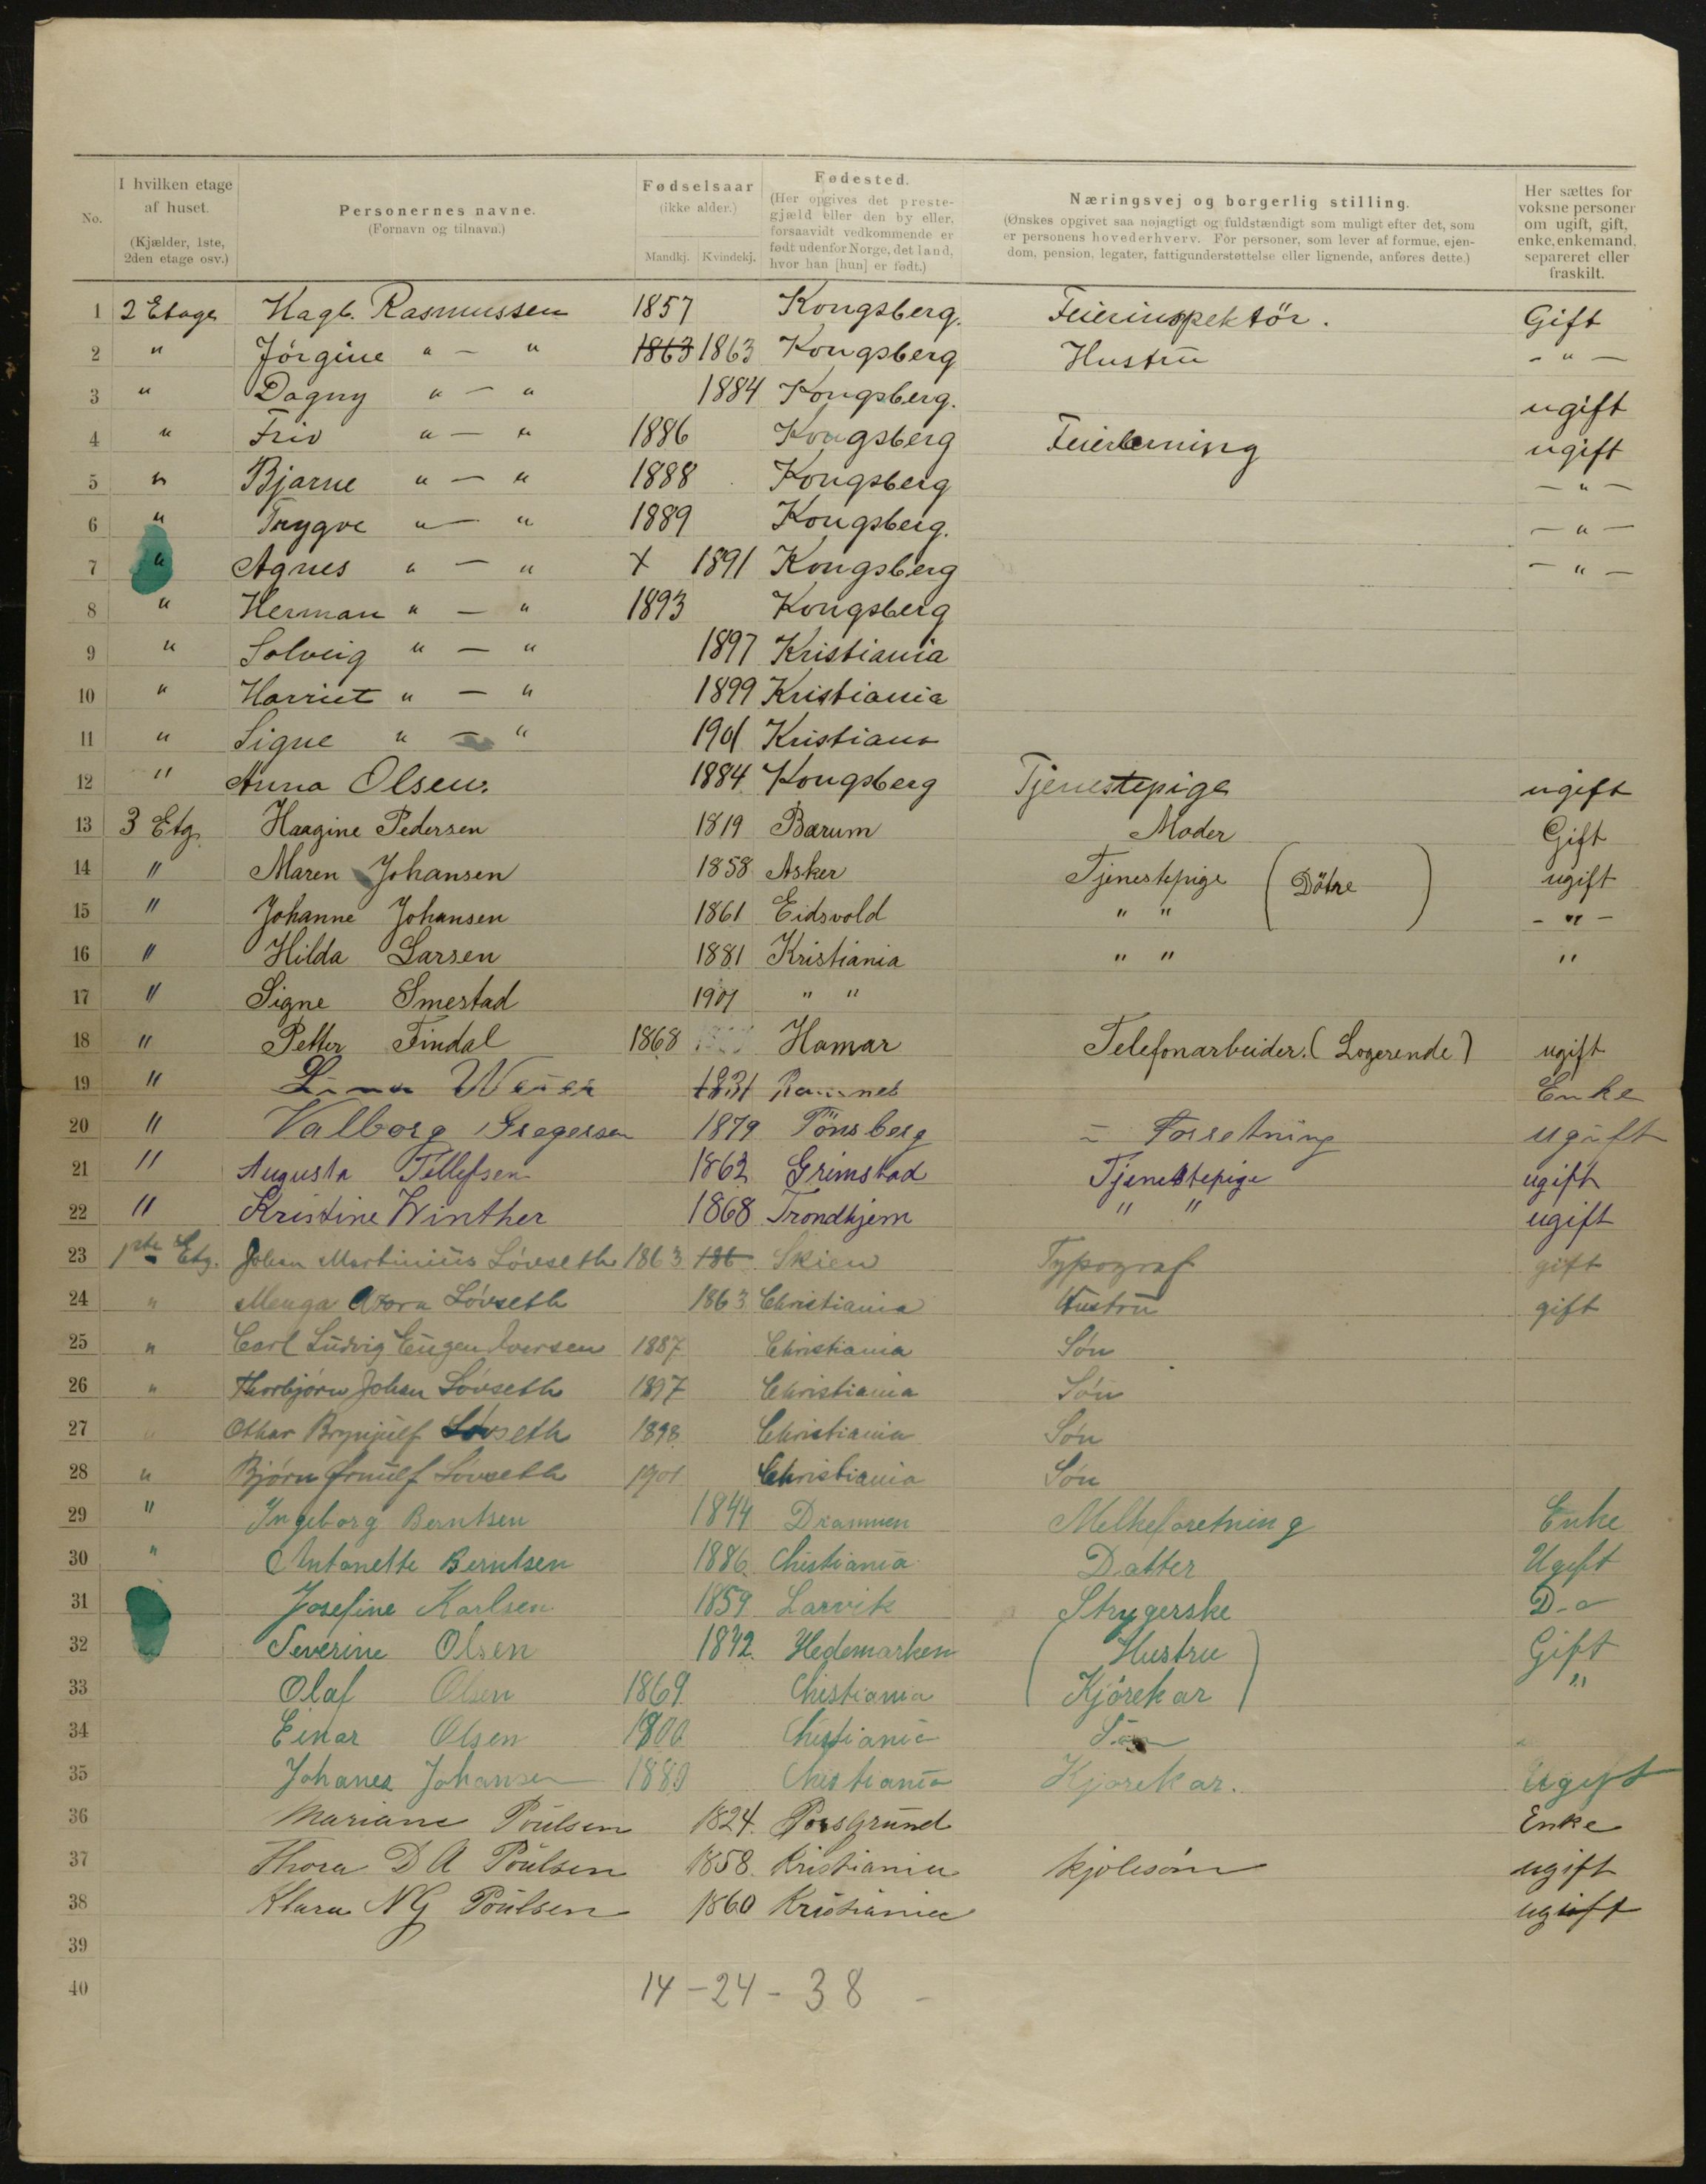 No. | I hvilken etage af huset. (Kjælder, 1ste, 2den etage osv.) | Personernes navne. (Fornavn og tilnavn.) | Fødselsaar (ikke alder.) Mandkj. Kvindekj. | Fødested. (Her opgives det prestegjæld eller den by eller, forsaavidt vedkommende er født udenfor Norge, det land, hvor han [hun] er født.) | Næringsvej og borgerlig stilling. (Ønskes opgivet saa nøjagtigt og fuldstændigt som muligt efter det, som er personens hovederhverv. For personer, som lever af formue, ejendom, pension, legater, fattigunderstøttelse eller lignende, anføres dette.) | Her sættes for voksne personer om ugift, gift, enke, enkemand, separeret eller fraskilt.
1 2 Etage Hagb. Rasmussen 1857 Kongsberg. Feierinspektör. Gift
2 " Jörgine " — " 1863 1863 Kongsberg Hustru - " -
3 " Dagny " — " 1884 Kongsberg. ugift
4 " " — " 1886 Kongsberg Feierlærning ugift
5 " Bjarne " — " 1888 Kongsberg — " —
6 " Trygve " — " 1889 Kongsberg. — " —
7 " Agnes " — " X 1891 Kongsberg — " —
8 " Herman " — " 1893 Kongsberg
9 " Solveig " — " 1897 Kristiania
10 " Harriet " — " 1899 Kristiania
11 " Signe " — " 1901 Kristiana
12 " Anna Olsen. 1884 Kongsberg Tjenestepige ugift
13 3 Etg. Haagine Pedersen 1819 Bærum Moder Gift
14 " Maren Johansen 1858 Asker Tjenestepige (Dötre) ugift
15 " Johanne Johansen 1861 Eidsvold " " - " -
16 " Hilda Larsen 1881 Kristiania " " "
17 " Signe Smestad 1901 " "
18 " Petter Findal 1868 Hamar Telefonarbeider. (Logerende) ugift
19 " 1831 Enke
20 " Valborg Gregersen 1879 Tönsberg Forretning ugift
21 " Augusta Tellefsen 1862 Grimstad Tjenestepige ugift
22 " Kristine Winther 1868 Trondhjem " " ugift
23 1ste Etg. Johan Martinius Lövseth 1863 186 Skien Typograf gift
24 " Menga Lövseth 1863 Christiania Hustru gift
25 " Carl Ludvig Eugen Iversen 1887 Christiania Søn
26 " Thorbjörn Johan Lövseth 1897 Christiania Søn
27 " Othar Brynjulf Lövseth 1898 Christiania Søn
28 " Bjørn Ørnulf Lövseth 1901 Christiania Søn
29 " Ingeborg Berntsen 1844 Drammen Melkeforetning Enke
30 " Antonette Berntsen 1886. Chistiania Datter Ugift
31 Josefine Karlsen 1859 Larvik Strygerske D-o
32 Severine Olsen 1842. Hedemarken (Hustru) Gift
33 Olaf Olsen 1869 Chistiania (Kjörekar) "
34 Einar Olsen 1900 Chistiania Sön
35 Johanes Johansen 1889 Chistiania Kjörekar. Ugift
36 Mariane Poulsen 1824. Porsgrund Enke
37 Thora D A Poulsen 1858. Kristiania kjolesöm ugift
38 Klara N G Poulsen 1860 Kristiania ugift
39
40
14 - 24 - 38 -